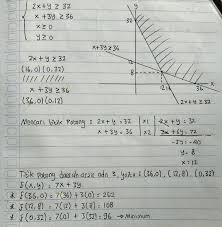 2x+y ≥ 32
x+3y ≥ 36
x ≥ 0
y ≥ 0
2x + y ≥ 32
(16,0) (0,32)
x + 3y ≥ 36
(36,0) (0,12)
y
32
x+3y ≥ 36
12
8
12
16
36
x
2x+y ≥ 32
Mencari titik Potong : 2x + y = 32 | x1 | 2x + y = 32
x + 3y = 36 | x2 | 2x + 6y = 72
-5y = -40
y = 8
x = 12
Titik potong daerah arsir adh 3, yaitu (36,0), (12,8), (0,32)
f(x,y) = 7x + 3y
f(36,0) = 7(36) + 3(0) = 252
f(12,8) = 7(12) + 3(8) = 108
f(0,32) = 7(0) + 3(32) = 96 → Minimum